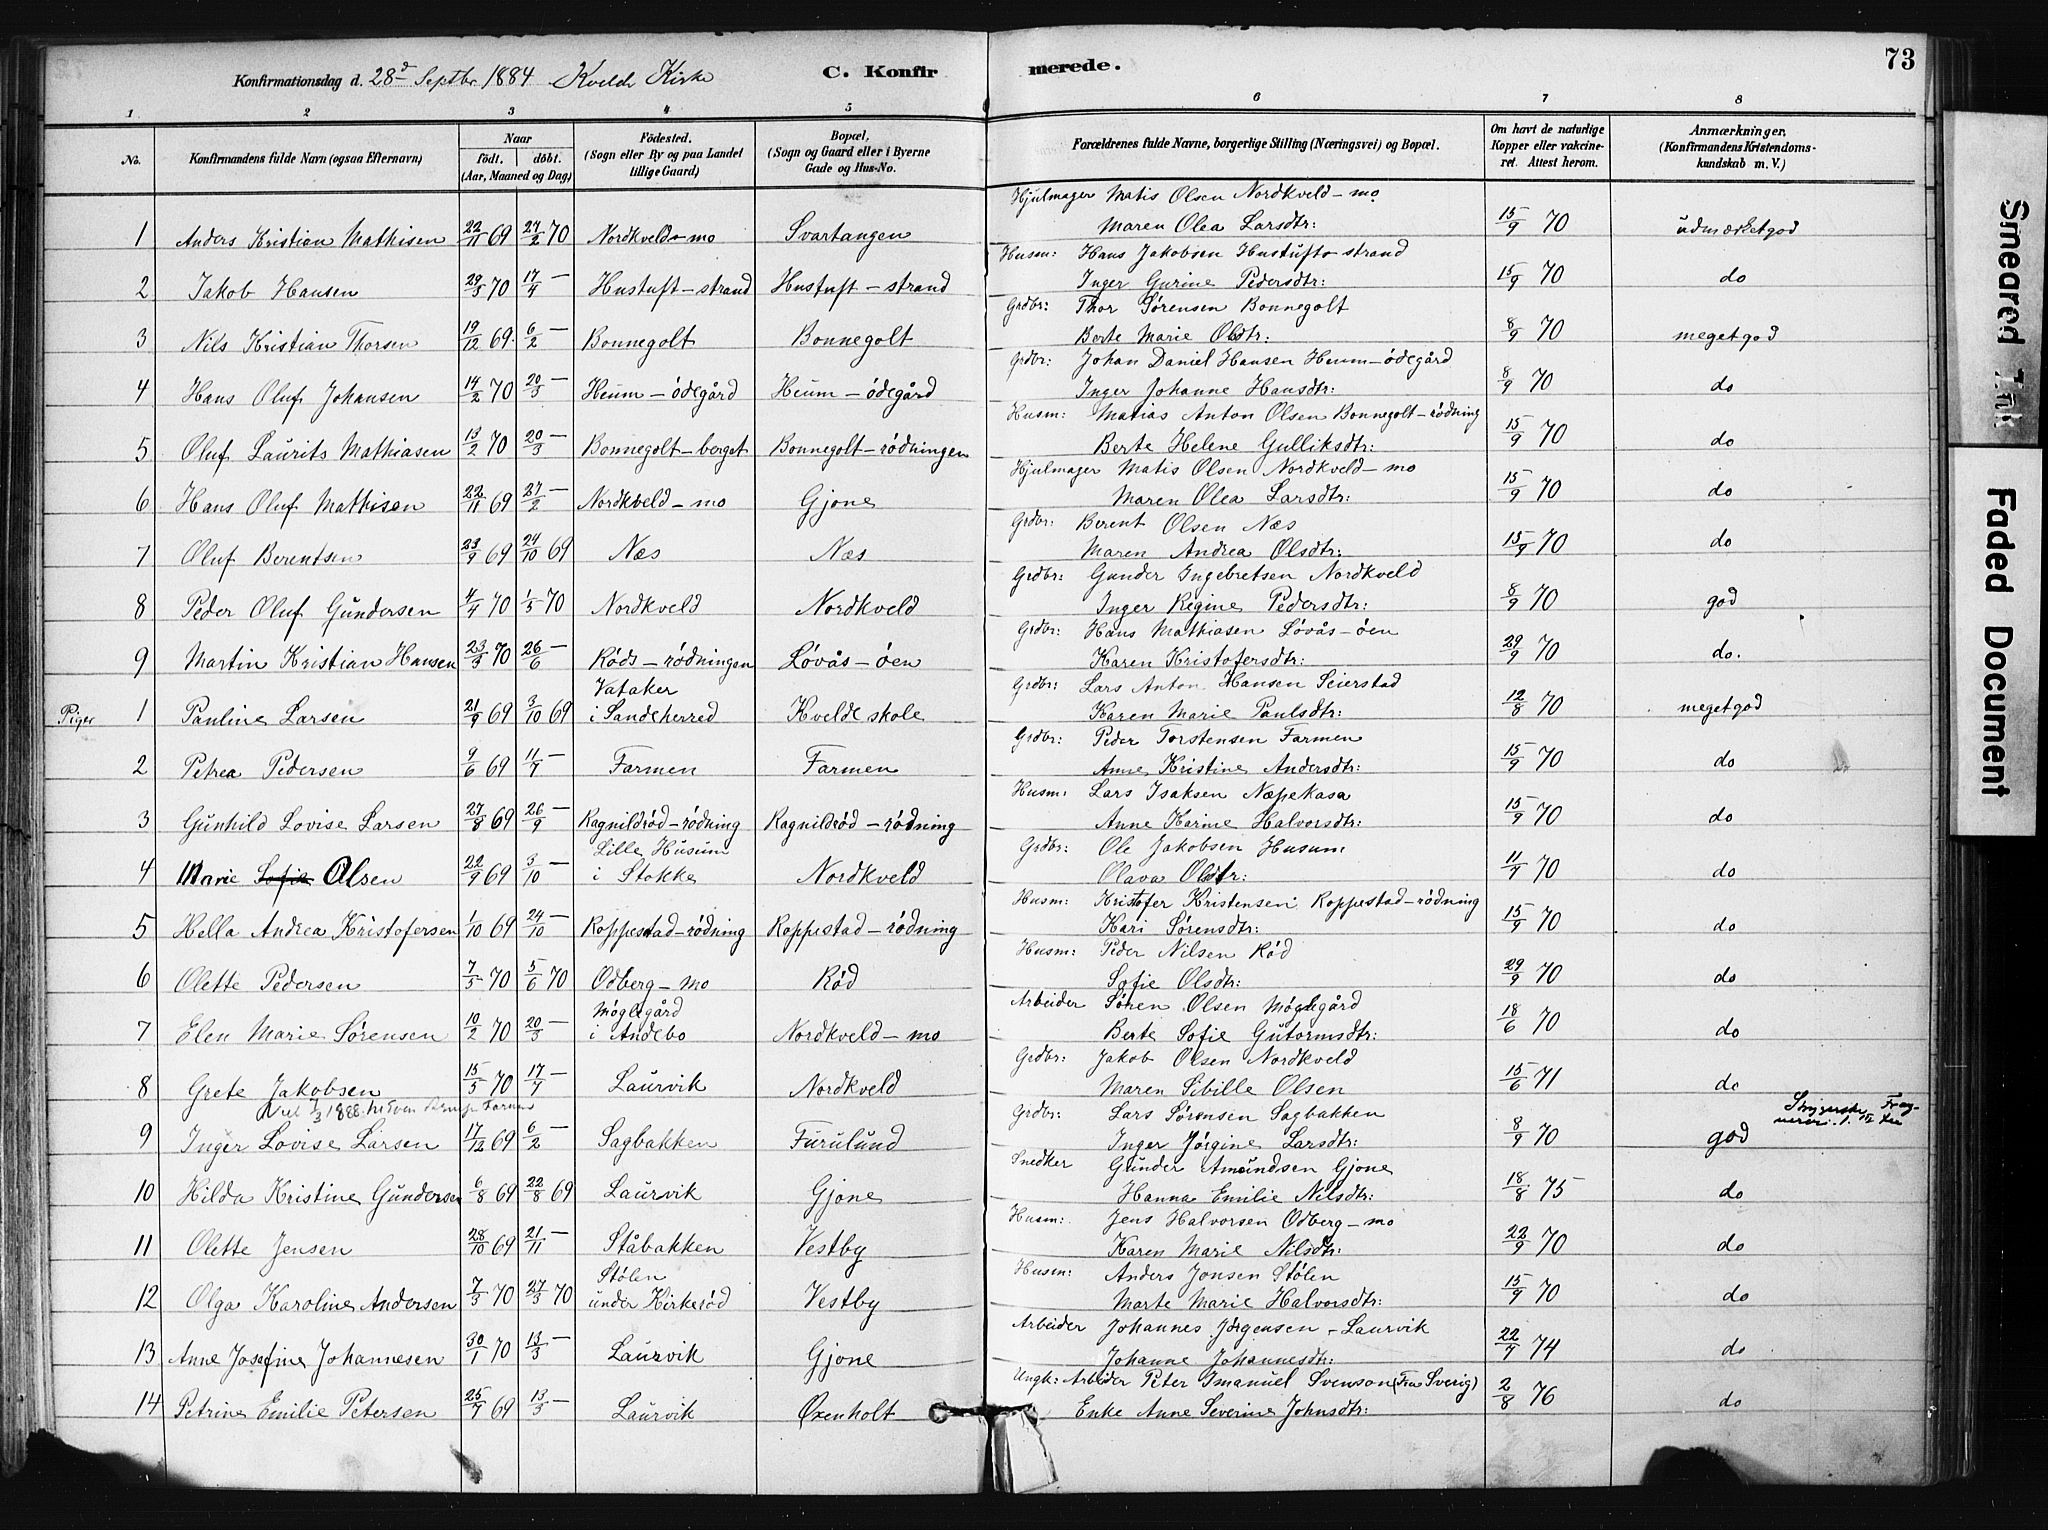 73
Konfirmationsdag d. 28d Septbr 1884 Kvelde Kirke C. Konfirmerede.
1 2 3 4 5 6 7 8
No. Konfirmandens fulde Navn (ogsaa Efternavn) Naar födt. döbt. (Aar, Maaned og Dag) Födested. (Sogn eller By og paa Landet tillige Gaard) Bopæl. (Sogn og Gaard eller i Byerne Gade og Hus-No. Forældrenes fulde Navne, borgerlige Stilling (Næringsvei) og Bopæl. Om havt de naturlige Kopper eller vakcineret. Attest herom. Anmærkninger. (Konfirmandens Kristendomskundskab m. V.)
1 Anders Kristian Mathisen 22/11 69 27/2 70 Nordkveld-mo Svartangen Hjulmager Matis Olsen Nordkveld-mo Maren Olea Larsdtr: 15/9 70 udmærketgod
2 Jakob Hansen 29/3 70 17/4 — Hustuft-strand Hustuft-strand Husm: Hans Jakobsen Hustufts strand Inger Gurine Pedersdtr: 15/9 70 do
3 Nils Kristian Thorsen 19/12 69 6/2 — Bonnegolt Bonnegolt Grdbr: Thor Sørensen Bonnegolt Berte Marie Olsdtr: 8/9 70 megetgod
4 Hans Oluf Johansen 14/2 70 20/3 — Heum-ödegård Heum-ödegård Grdbr: Johan Daniel Hansen Heum-ödegård Inger Johanne Hansdtr: 8/9 70 do
5 Oluf Laurits Mathiasen 13/2 70 20/3 — Bonnegolt-berget Bonnegolt-rödningen Husm: Matias Anton Olsen Bonnegolt-rödning Berte Helene Gulliksdtr: 15/9 70 do
6 Hans Oluf Mathisen 22/11 69 27/2 — Nordkveld-mo Gjone Hjulmager Matis Olsen Nordkveld-mo Maren Olea Larsdtr: 15/9 70 do
7 Oluf Berentsen 23/9 69 24/10 69 Næs Næs Grdbr: Berent Olsen Næs Maren Andrea Olsdtr: 15/9 70 do
8 Peder Oluf Gundersen 4/4 70 1/5 70 Nordkveld Nordkveld Grdbr: Gunder Ingebretsen Nordkveld Inger Regine Pedersdtr: 8/9 70 god
9 Martin Kristian Hansen 23/3 70 26/6 — Röds-rödningen Lövås-öen Grdbr: Hans Mathiasen Lövås-öen Karen Kristofersdtr: 29/9 70 do.
Piger 1 Pauline Larsen 21/9 69 3/10 69 Vataker i Sandeherred Kvelde skole Grdbr: Lars Anton Hansen Seierstad Karen Marie Paulsdtr: 12/8 70 megetgod
2 Petrea Pedersen 9/6 69 11/7 — Farmen Farmen Grdbr: Peder Torstensen Farmen Anne Kristine Andersdtr: 15/9 70 do
3 Gunhild Lovise Larsen 27/8 69 26/9 — Ragnildröd-rödning Ragnildröd-rödning Husm: Lars Isaksen Næpekasa Anne Karine Halvorsdtr: 15/9 70 do
4 Marie Sofie Olsen 22/9 69 3/10 — Lille Husum i Stokke Nordkveld Grdbr: Ole Jakobsen Husum Olava Olsdtr: 11/9 70 do
5 Hella Andrea Kristofersen 1/10 69 24/10 — Roppestad-rödning Roppestad-rödning Husm: Kristofer Kristensen Roppestad-rödning Kari Sørensdtr: 15/9 70 do
6 Olette Pedersen 7/5 70 5/6 70 Odberg-mo Röd Husm: Peder Nilsen Röd Sofie Olsdtr: 29/9 70 do
7 Elen Marie Sørensen 10/2 70 20/3 — Möglegård i Andebo Nordkveld-mo Arbeider Sören Olsen Möglegård Berte Sofie Gutormsdtr: 18/6 70 do
8 Grete Jakobsen 15/5 70 17/7 — Laurvik Nordkveld Grdbr: Jakob Olsen Nordkveld Maren Sibille Olsen 15/6 71 do
9 Inger Lovise Larsen 17/12 69 6/2 — Sagbakken Furulund Grdbr: Lars Sørensen Sagbakken Inger Jörgine Larsdtr: 8/9 70 god
10 Hilda Kristine Gundersen 6/8 69 22/8 69 Laurvik Gjone Snedker Gunder Amundsen Gjone Hanna Emilie Nilsdtr: 18/8 75 do
11 Olette Jensen 28/10 69 21/11 — Ståbakken Vestby Husm: Jens Halvorsen Odberg-mo Karen Marie Nilsdtr: 22/9 70 do
12 Olga Karoline Andersen 7/3 70 27/3 70 Stölen under Kirkeröd Vestby Husm: Anders Jonsen Stölen Marte Marie Halvorsdtr: 15/9 70 do
13 Anne Josefine Johannesen 30/1 70 13/3 — Laurvik Gjone Arbeider Johannes Jørgensen - Laurvik Johanne Johannesdtr: 22/9 74 do
14 Petrine Emilie Petersen 25/7 69 13/3 — Laurvik Oxenholt Ungk: Arbeider Peter Imanuel Svenson (fra Sverig) Enke Anne Severine Johnsdtr: 2/8 76 do
Smeared Ink
Faded Document